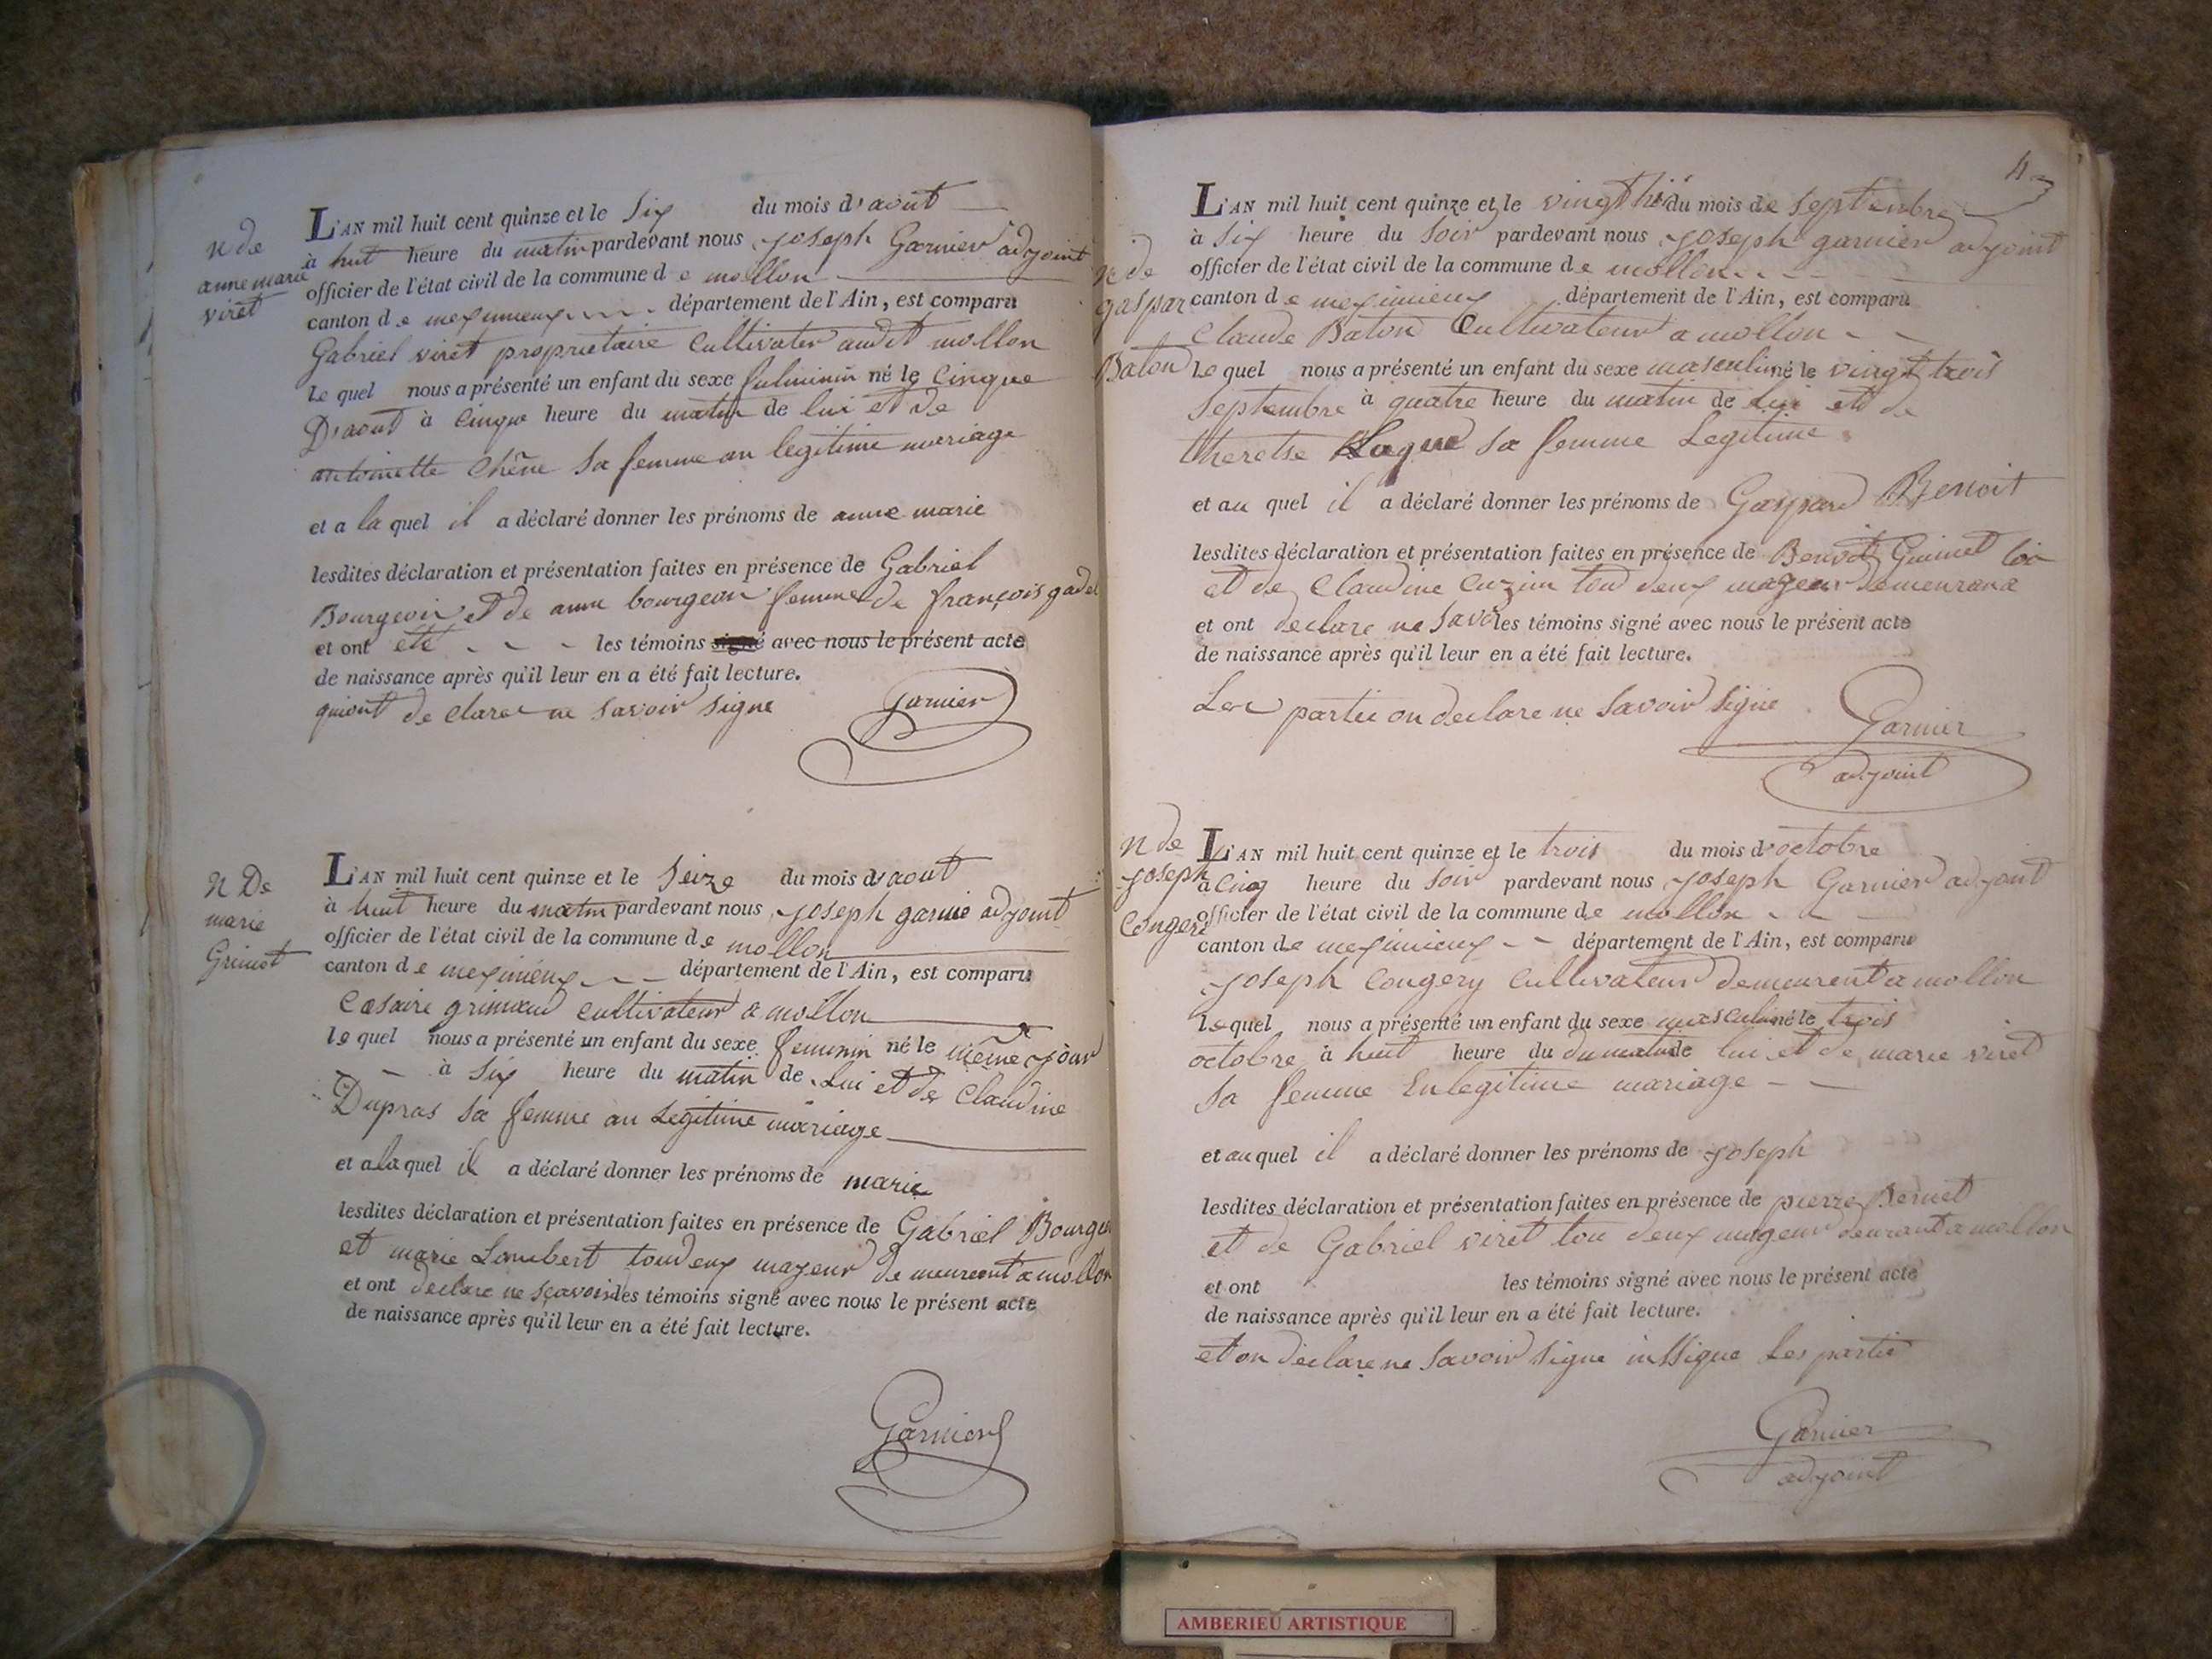 n de
anne marie
viret
L'AN mil huit cent quinze et le six du mois d'aout
à huit heure du matin pardevant nous joseph Garnier adjoint
officier de l'état civil de la commune de mollon
canton de meximieux département de l'Ain, est comparu
Gabriel viret proprietaire Cultivater audit mollon
Le quel nous a présenté un enfant du sexe né le Cinque
D'aout à Cinque heure du matin de lui et de
antoinette Chêne sa femme an legitime mariage
et a la quel il a déclaré donner les prénoms de anne marie
lesdites déclaration et présentation faites en présence de Gabriel
Bourgeoir et de anne bourgeon femme de françois
et ont été les témoins signé avec nous le présent acte
de naissance après qu'il leur en a été fait lecture.
quiont de clarer ne savoir signe
Garnier
n De
marie
L'AN mil huit cent quinze et le seize du mois d'aout
à huit heure du matin pardevant nous joseph garnie adjoint
officier de l'état civil de la commune de mollon
canton de meximieux département de l'Ain, est comparu
Cesaire cultivateur a mollon
le quel nous a présenté un enfant du sexe feminin né le même jour
à six heure du matin de Lui et de Claudine
Dupras sa femme an Legitime mariage
et a la quel il a déclaré donner les prénoms de marie
lesdites déclaration et présentation faites en présence de Gabriel
et marie Lambert toudeux mayeur de meureont a mollon
et ont declare ne sçavoir les témoins signé avec nous le présent acte
de naissance après qu'il leur en a été fait lecture.
Garnier
n de
gaspar
Baton
L'AN mil huit cent quinze et le du mois de septembre
à six heure du soir pardevant nous joseph garnier adjoint
officier de l'état civil de la commune de mollon
canton de meximieux département de l'Ain, est comparu
Claude Baton Cultivateur a mollon
Le quel nous a présenté un enfant du sexe masculin né le vingt trois
septembre à quatre heure du matin de Lui et de
sa femme Legitime
et au quel il a déclaré donner les prénoms de Gaspard Benoit
lesdites déclaration et présentation faites en présence de Benoit
et de Claudine Cuzin tou deux mageur demeurana
et ont declare ne savoi les témoins signé avec nous le présent acte
de naissance après qu'il leur en a été fait lecture.
Les partie on declare ne savoir signe
Garnier
adjoint
n de
joseph
L'AN mil huit cent quinze et le trois du mois d'octobre
à Cinq heure du soir pardevant nous joseph Garnier adjoint
officier de l'état civil de la commune de mollon
canton de meximieux département de l'Ain, est comparu
joseph Congery Cultivateur demeurent a mollon
Le quel nous a présenté un enfant du sexe masculin né le trois
octobre à huit heure du du matin de lui et de marie viret
sa femme En legitime mariage
et au quel il a déclaré donner les prénoms de joseph
lesdites déclaration et présentation faites en présence de pierre
et de Gabriel viret tou deux mageur a mollon
et ont les témoins signé avec nous le présent acte
de naissance après qu'il leur en a été fait lecture.
et on declare ne savoir signe Les partie
Garnier
adjoint
AMBERIEU ARTISTIQUE